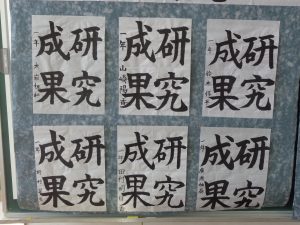 研究
成果
一年
研究
成果
一年 山崎
研究
成果
一年
研究
成果
研究
成果
田村
研究
成果